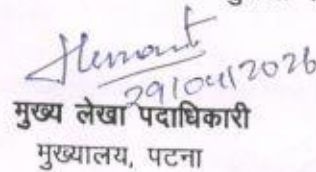 29/04/2026
मुख्य लेखा पदाधिकारी
मुख्यालय, पटना